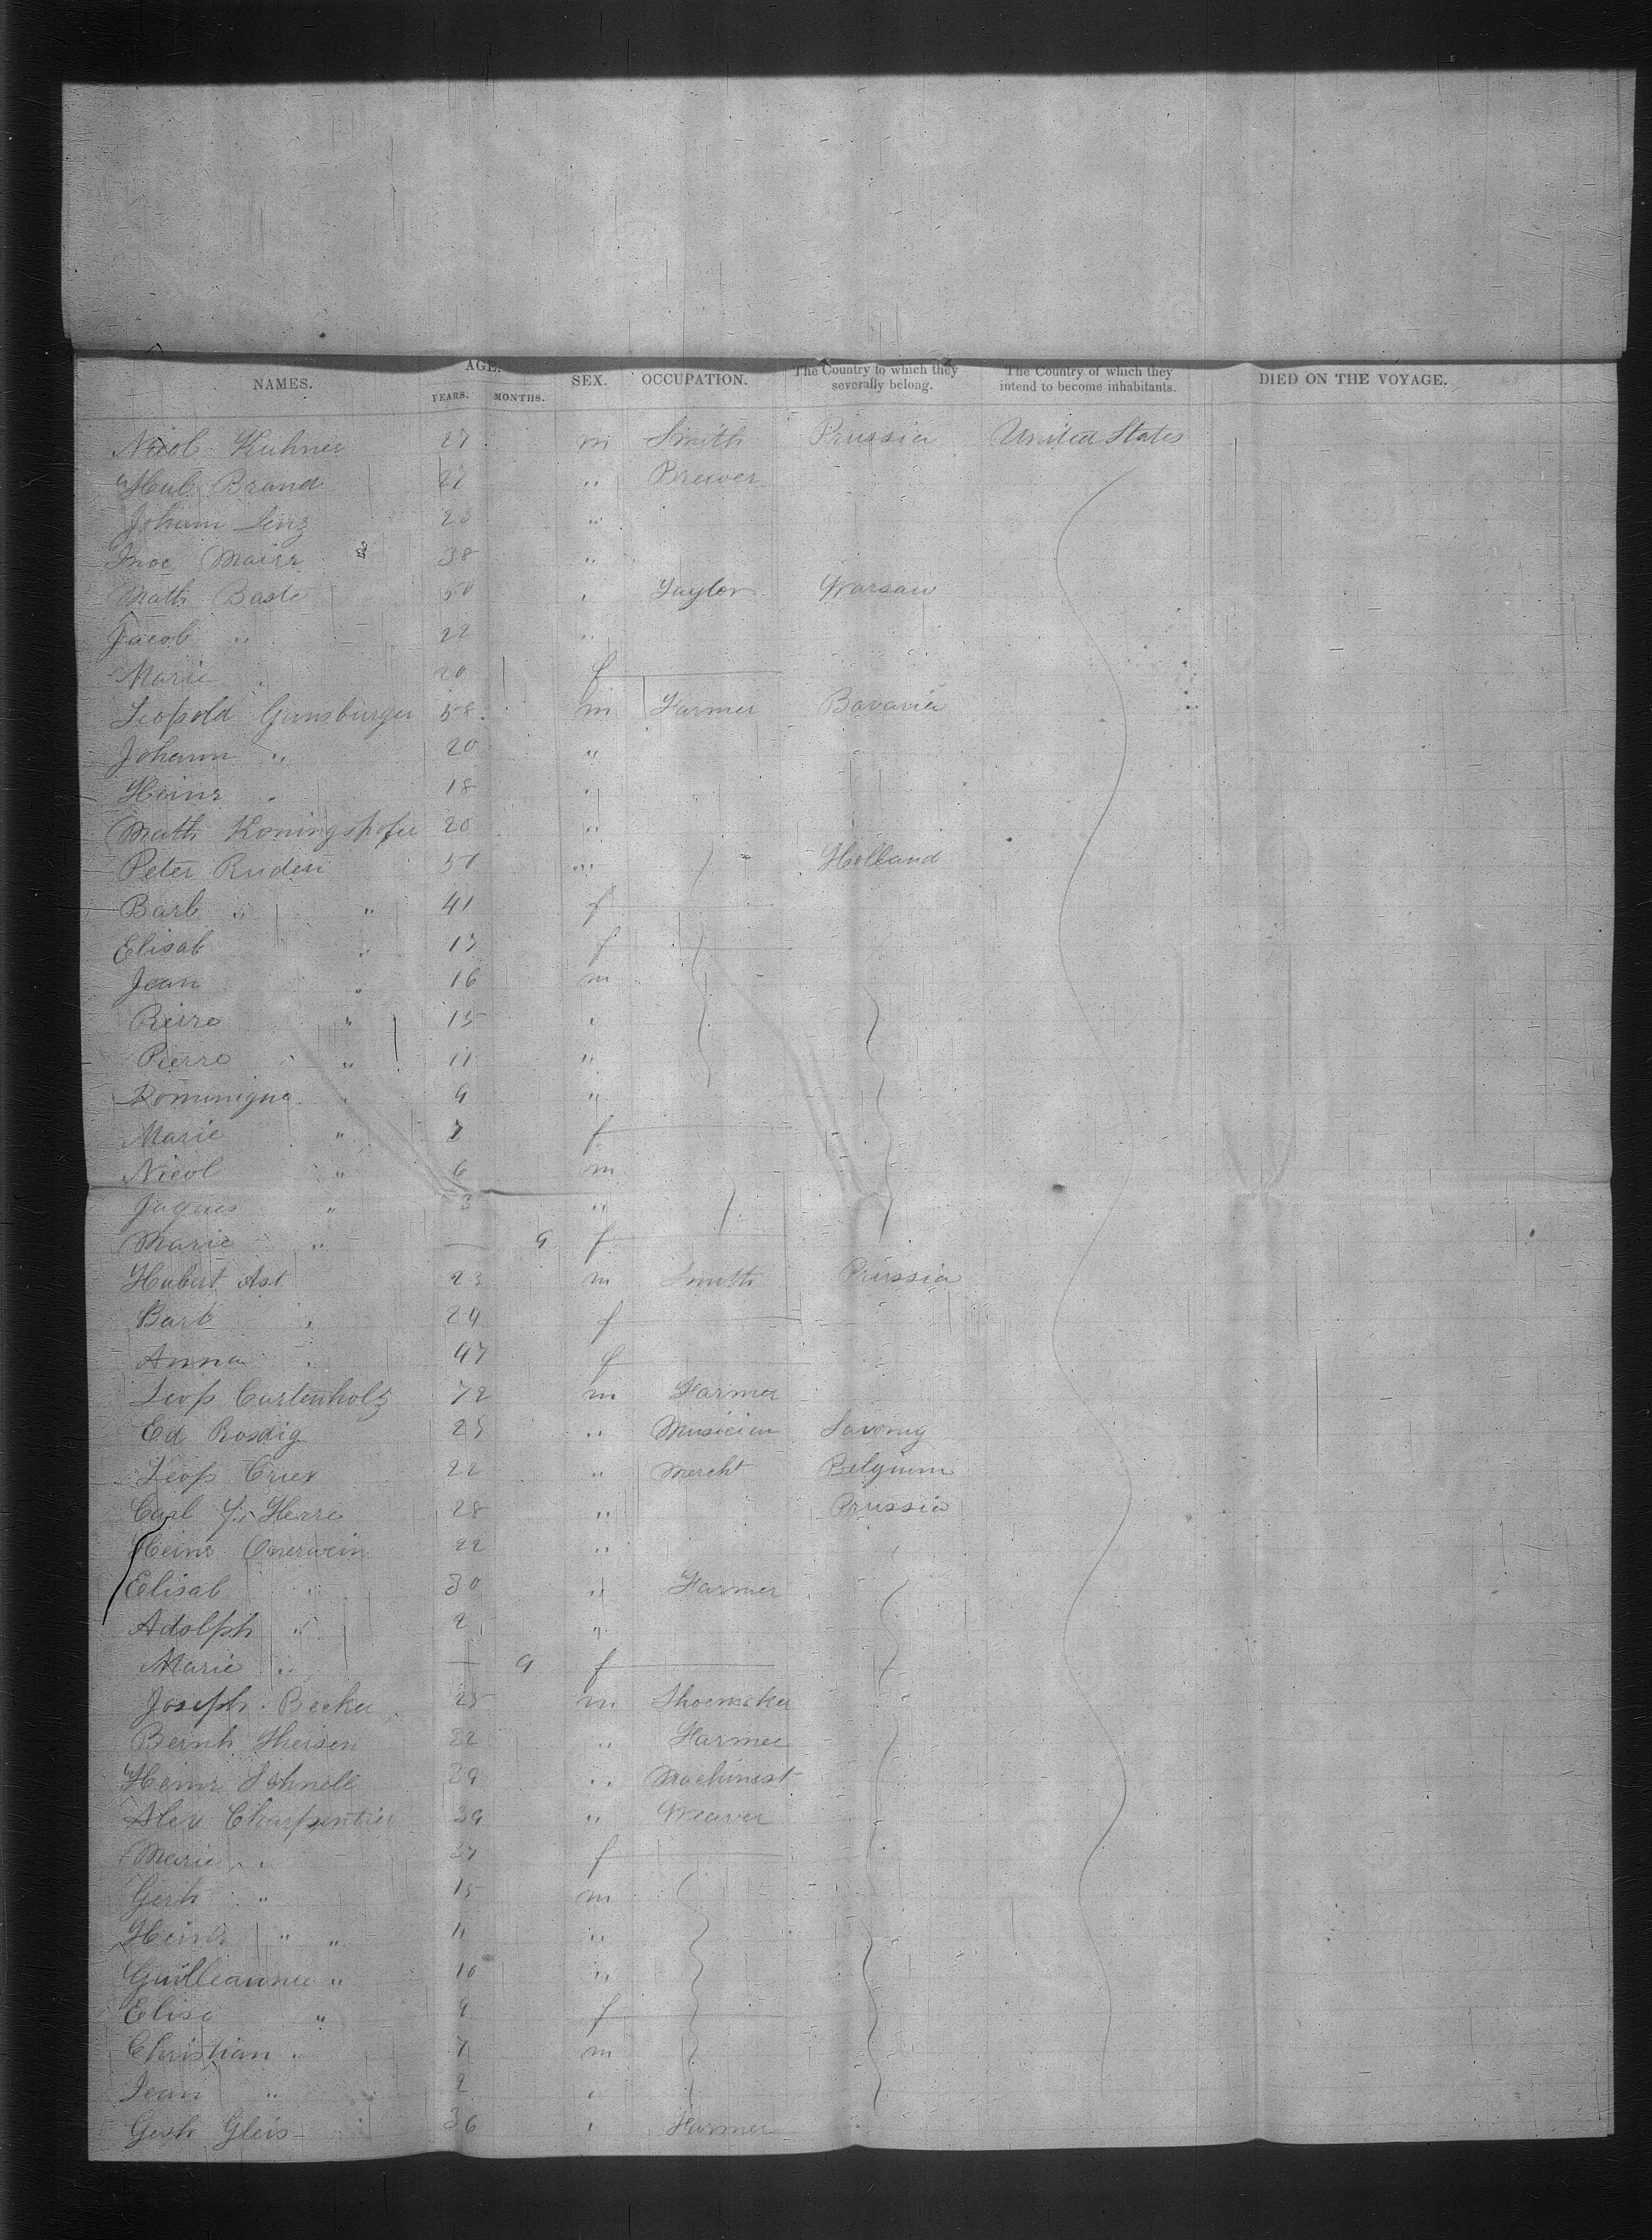 NAMES. AGE. YEARS. MONTHS. SEX. OCCUPATION. The Country to which they severally belong. The Country of which they intend to become inhabitants. DIED ON THE VOYAGE.
Nicol Kuhner 27 m Smith Prussia United States
Hub Brand 27 " Brewer
Johann Lenz 23 "
Maier 38 "
Math Baste 50 " Taylor Warsaw
Jacob " 22 "
Marie " 20 f
Leopold Gunsburger 58 m Farmer Bavaria
Johann " 20 "
Heinr " 18 "
Math Koningshofer 20 "
Peter Ruden 50 " Holland
Barb " " 41 f
Elisab " 13 f
Jean " 16 m
Pierre " 15 "
Pierre " 11 "
Dominique " 9 "
Marie " 7 f
Nicol " 6 m
Jaques " 3 "
Marie " — 9 f
Hubert Ast 23 m Smith Prussia
Barb " 24 f
Anna " 47 f
Leop Cartenholz 72 m Farmer
Ed Rosdig 25 " Musician Saxony
Leop 22 " Mercht Belgium
Carl Herre 28 " Prussia
Heinr 22 "
Elisab " 30 " Farmer
Adolph " 2 "
Marie " — 9 f
Joseph Becker 25 m Shoemaker
Bernh Theisen 32 " Farmer
Heinr Schnell 39 " Machinist
Alex Charpentier 39 " Weaver
Marie " 37 f
Gerh " 15 m
Heinr " " 11 "
Guilleaume " 10 "
Elise " 9 f
Christian " 7 m
Jean " 2 "
Gerh Gleis 36 " Farmer